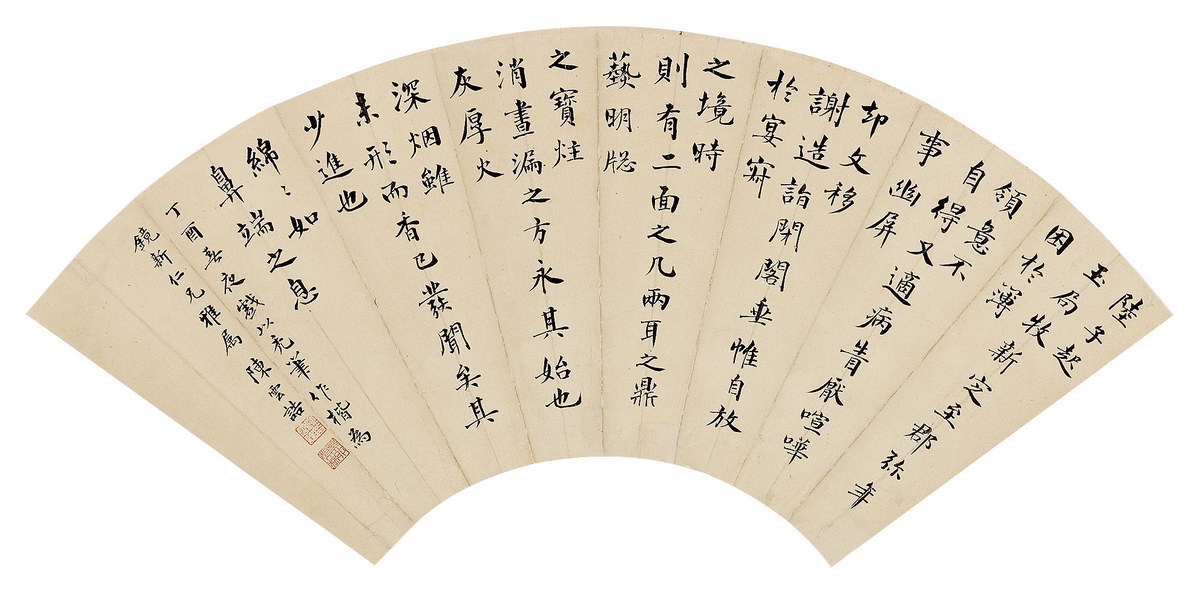 陸子起
玉局牧新定至郡弥年
困於簿
領意不
自得又適病眚厭喧嘩
事幽屏
却文移
謝造詣閉閣垂帷自放
於宴寂
之境時
則有二面之几兩耳之鼎
爇明牕
之寶炷
消晝漏之方永其始也
灰厚火
深烟雖
未形而香已發聞矣其
少進也
綿〻如
鼻端之息
丁酉春夜戲以禿筆作楷為
鏡新仁兄雅属 陳雲誥